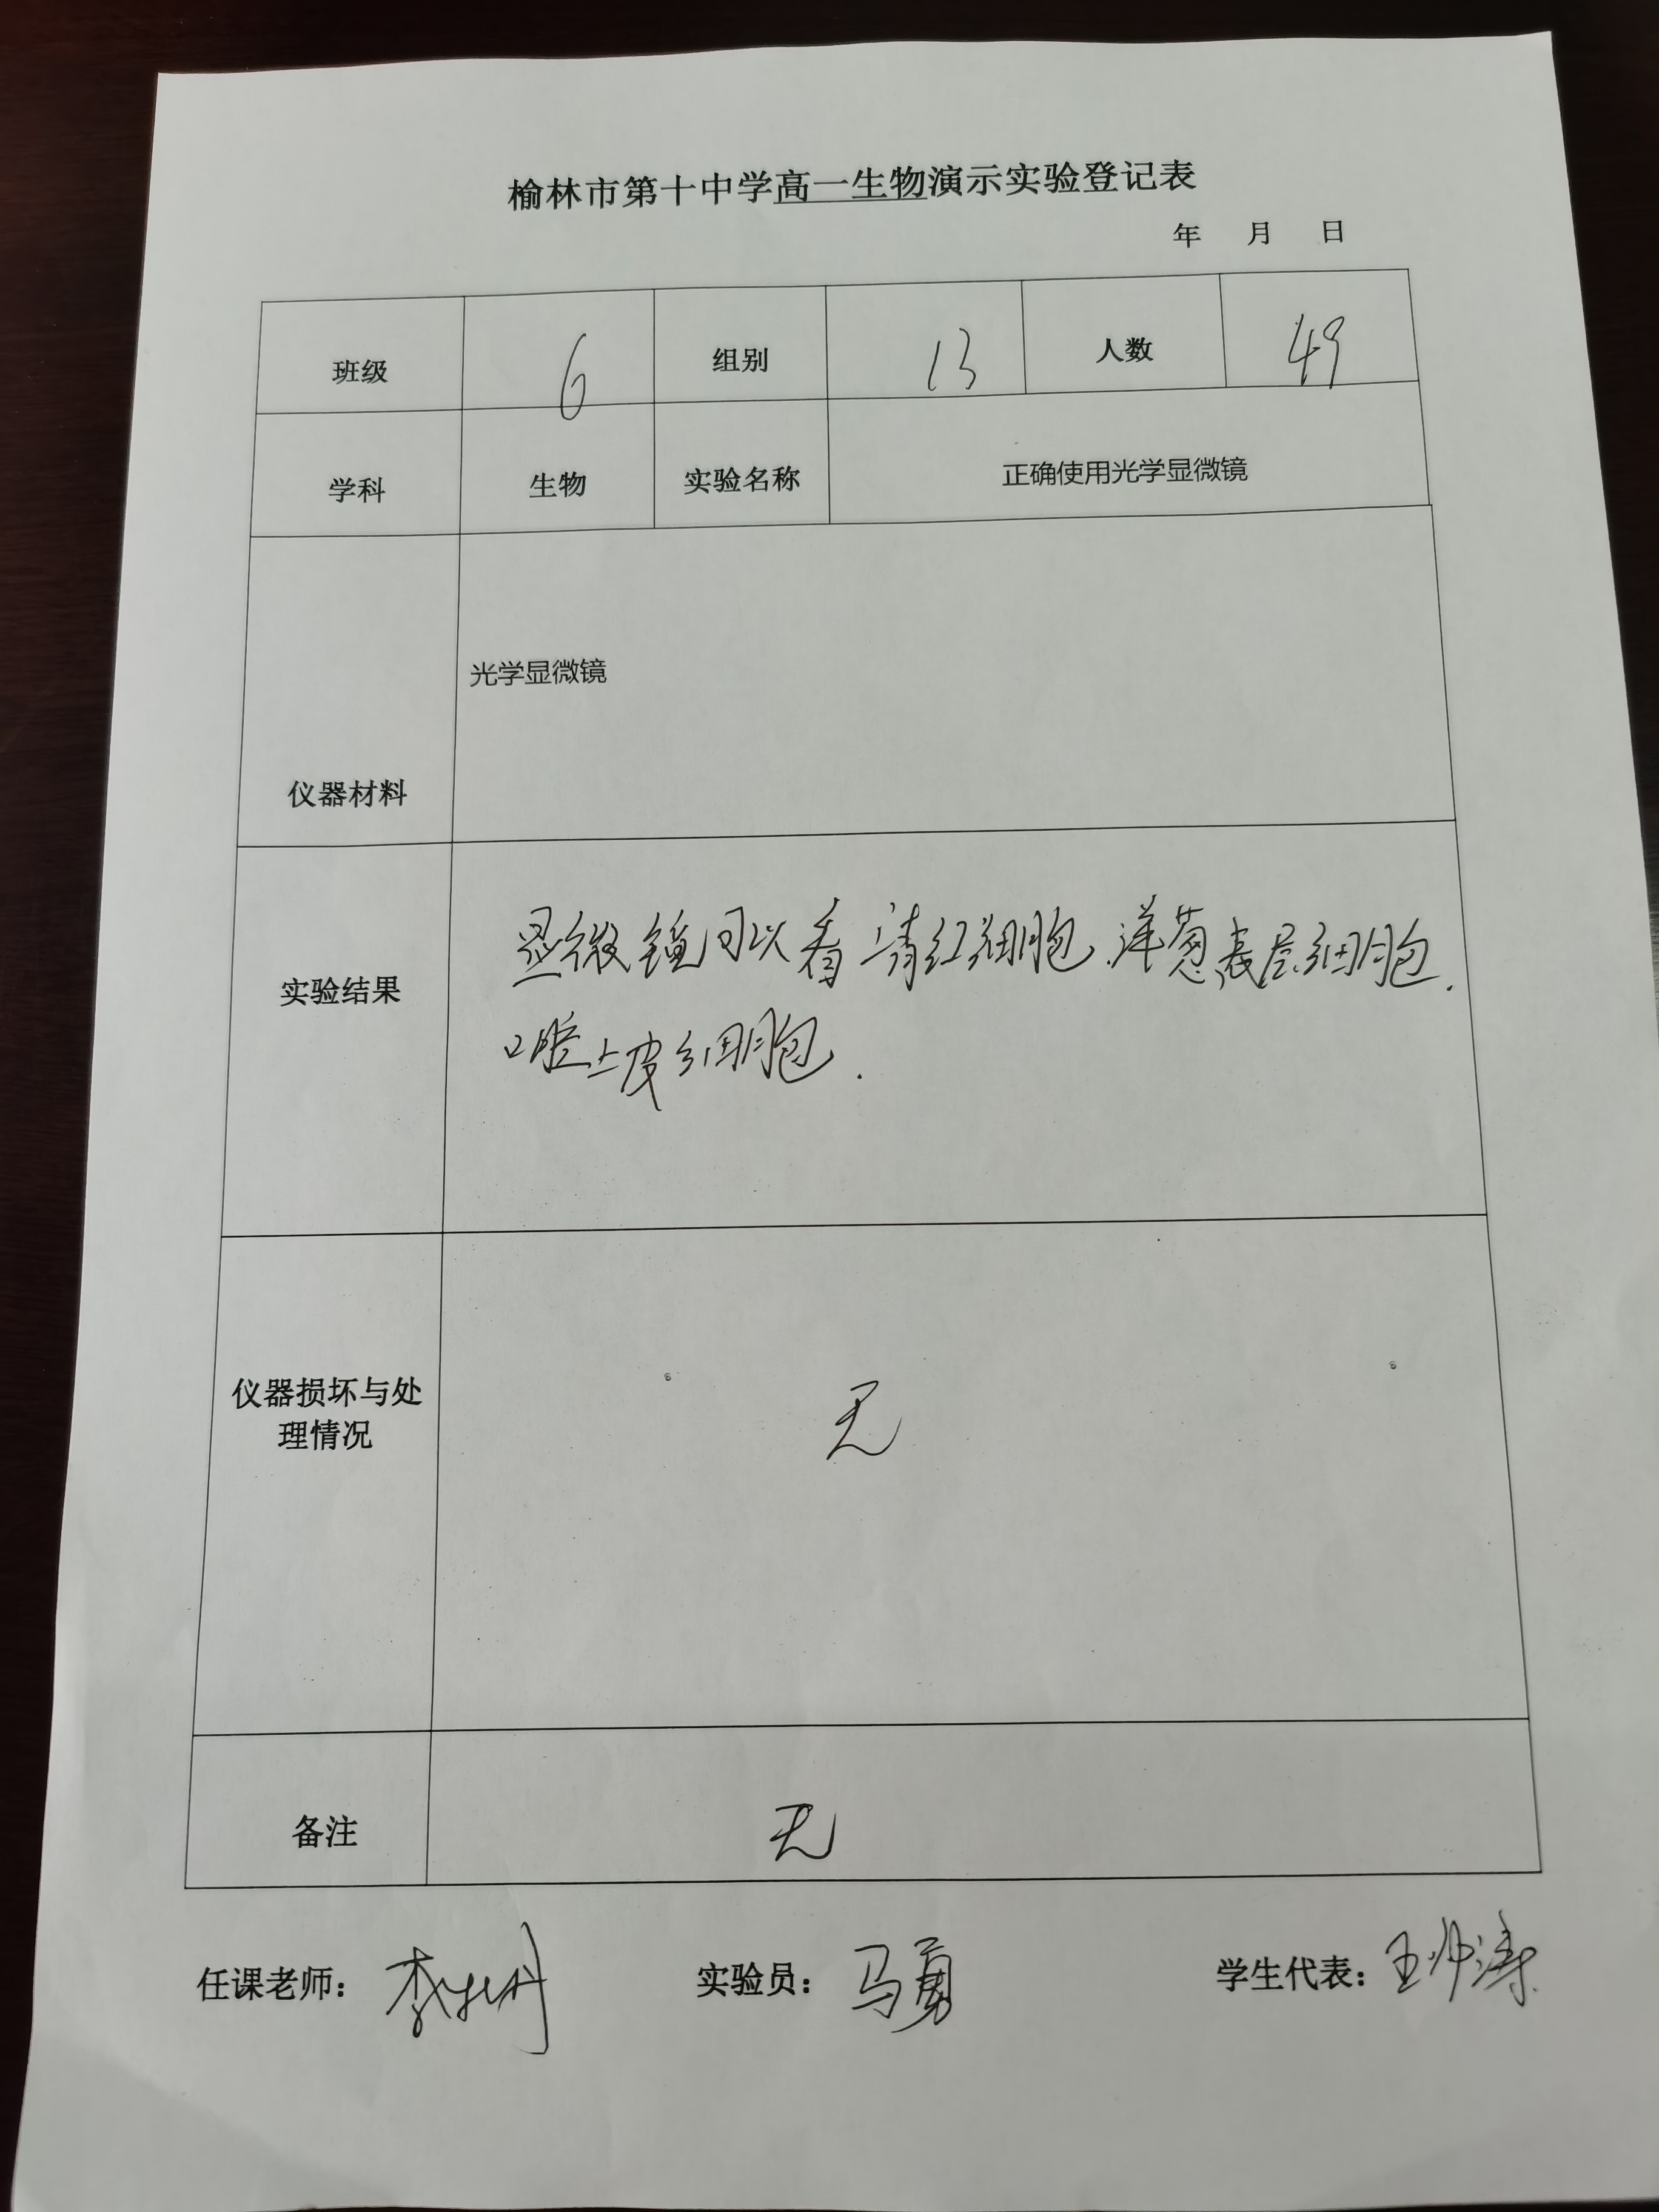 榆林市第十中学高一生物演示实验登记表
年 月 日
班级 6 组别 13 人数 49
学科 生物 实验名称 正确使用光学显微镜
光学显微镜
仪器材料
显微镜可以看清红细胞、洋葱表层细胞、
实验结果
口腔上皮细胞.
仪器损坏与处
理情况
无
备注 无
任课老师： 李 实验员：马勇 学生代表：王帅涛